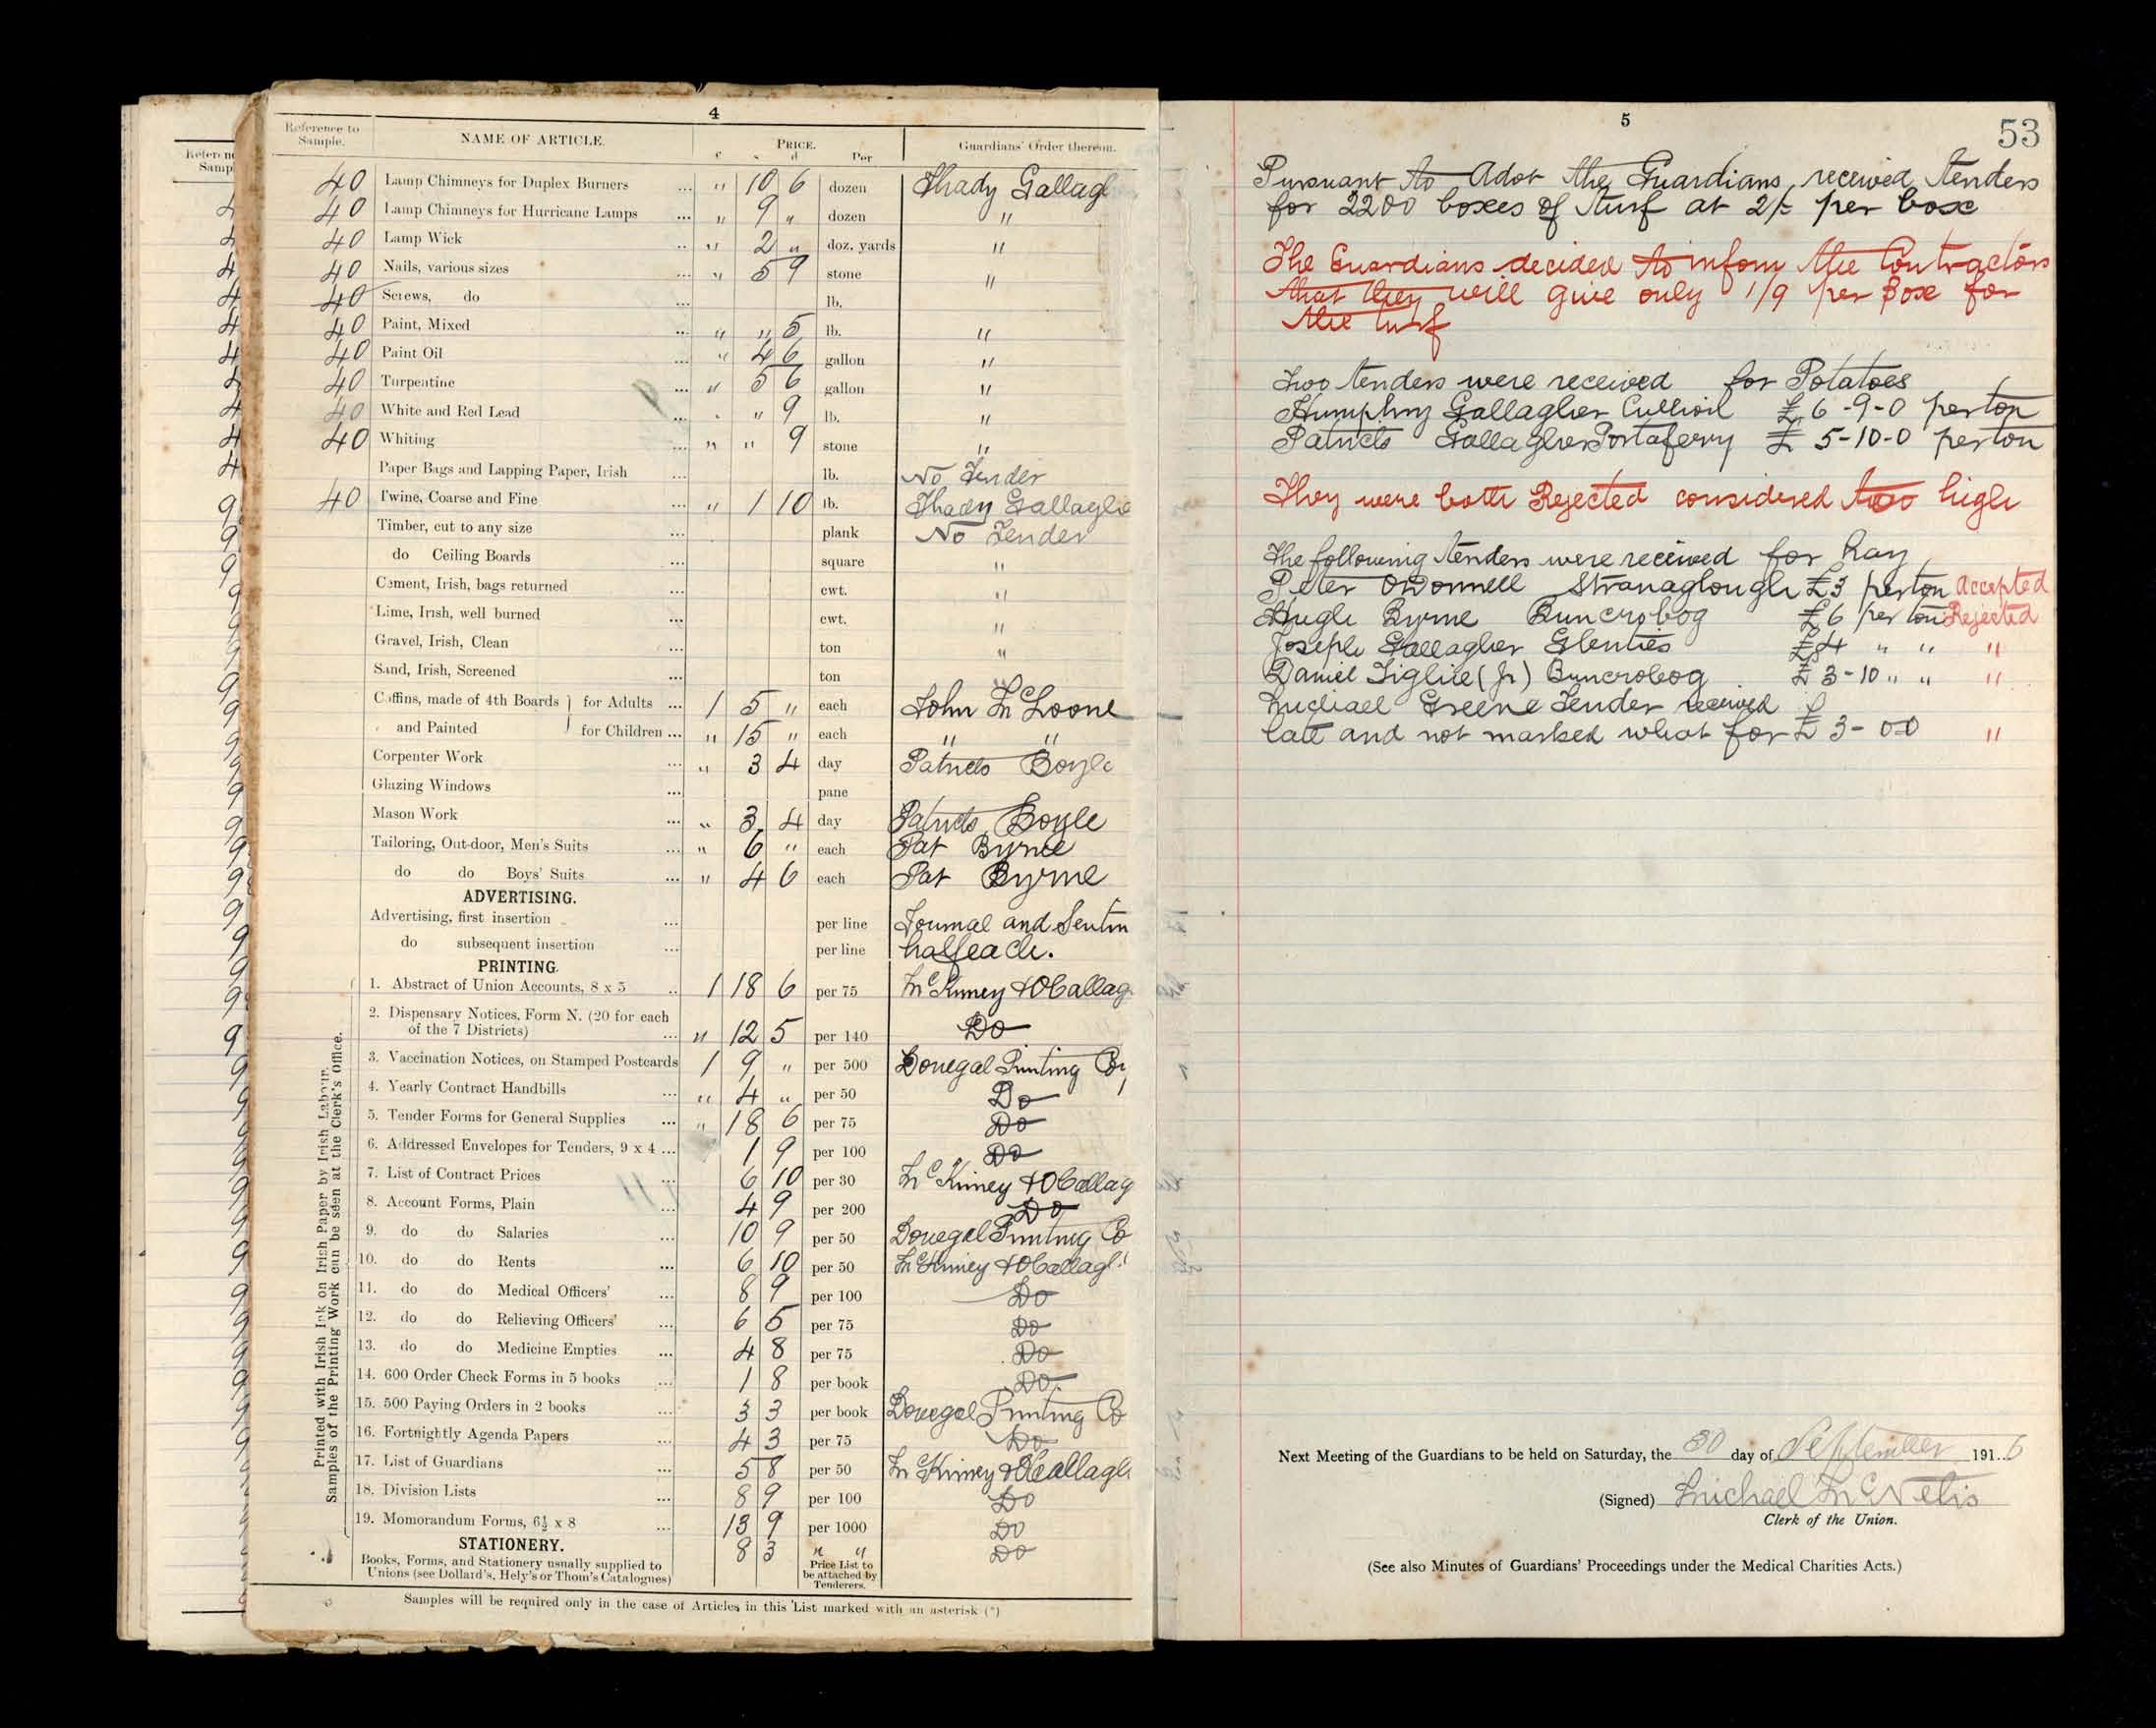 4
Reference to Sample. NAME OF ARTICLE. PRICE. Guardians' Order thereon.
£ s d Per
40 Lamp Chimneys for Duplex Burners ... " 10 6 dozen Thady Gallagh
40 Lamp Chimneys for Hurricane Lamps ... " 9 " dozen "
40 Lamp Wick ... " 2 " doz. yards "
40 Nails, various sizes ... " 5 9 stone "
40 Screws, do ... lb.
40 Paint, Mixed ... " " 5 lb. "
40 Paint Oil ... " 4 6 gallon "
40 Turpentine ... " 5 6 gallon "
40 White and Red Lead ... " " 9 lb. "
40 Whiting ... " " 9 stone "
Paper Bags and Lapping Paper, Irish ... lb. No Tender
40 Twine, Coarse and Fine ... " 1 10 lb. Thady Gallaghe
Timber, cut to any size ... plank No Tender
do Ceiling Boards ... square "
Cement, Irish, bags returned ... cwt. "
Lime, Irish, well burned ... cwt. "
Gravel, Irish, Clean ... ton "
Sand, Irish, Screened ... ton "
Coffins, made of 4th Boards } for Adults ... 1 5 " each John McLoone
" and Painted } for Children ... " 15 " each " "
Corpenter Work ... " 3 4 day Patrick Boyle
Glazing Windows ... pane
Mason Work ... " 3 4 day Patrick Boyle
Tailoring, Out-door, Men's Suits ... " 6 " each Pat Byrne
do do Boys' Suits ... " 4 6 each Pat Byrne
ADVERTISING.
Advertising, first insertion ... per line Journal and Sentin
do subsequent insertion ... per line half each.
PRINTING.
1. Abstract of Union Accounts, 8 x 5 ... 1 18 6 per 75 McKinney & O'Callag
2. Dispensary Notices, Form N. (20 for each
of the 7 Districts) ... " 12 5 per 140 Do
3. Vaccination Notices, on Stamped Postcards 1 9 " per 500 Donegal Printing Coy
4. Yearly Contract Handbills ... " 4 " per 50 Do
5. Tender Forms for General Supplies ... " 18 6 per 75 Do
6. Addressed Envelopes for Tenders, 9 x 4 ... 1 9 per 100 Do
7. List of Contract Prices ... 6 10 per 30 McKinney & O'Callag
8. Account Forms, Plain ... 4 9 per 200 Do
9. do do Salaries ... 10 9 per 50 Donegal Printing Co
10. do do Rents ... 6 10 per 50 McKinney & O'Callagh
11. do do Medical Officers' ... 8 9 per 100 Do
12. do do Relieving Officers' ... 6 5 per 75 Do
13. do do Medicine Empties ... 4 8 per 75 Do
14. 600 Order Check Forms in 5 books ... 1 8 per book Do
15. 500 Paying Orders in 2 books ... 3 3 per book Donegal Printing Co
16. Fortnightly Agenda Papers ... 4 3 per 75 Do
17. List of Guardians ... 5 8 per 50 McKinney & O'Callagh
18. Division Lists ... 8 9 per 100 Do
19. Memorandum Forms, 6½ x 8 ... 13 9 per 1000 Do
STATIONERY. 8 3 " " Do
Books, Forms, and Stationery usually supplied to
Unions (see Dollard's, Hely's or Thom's Catalogues)
Price List to
be attached by
Tenderers.
Printed with Irish Ink on Irish Paper by Irish Labour.
Samples of the Printing Work can be seen at the Clerk's Office.
Samples will be required only in the case of Articles in this List marked with an asterisk (*)
5
53
Pursuant to Advt the Guardians received tenders
for 2200 boxes of turf at 2/= per box
The Guardians decided to inform the Contractors
that they will give only 1/9 per Box for
the turf
Two tenders were received for Potatoes
Humphry Gallagher Cullion £6-9-0 per ton
Patrick Gallagher Portaferry £ 5-10-0 per ton
They were both Rejected considered too high
The following tenders were received for hay
Peter O'Donnell Stranaglough £3 per ton Accepted
Hugh Byrne Buncrobog £6 per ton Rejected
Joseph Gallagher Glenties £4 " " "
Daniel Tighe (Jr) Buncrobog £ 3-10 " " "
Michael Greene Tender received
late and not marked what for £ 3-0-0 "
Next Meeting of the Guardians to be held on Saturday, the 30 day of September 1916
(Signed) Michael McNelis
Clerk of the Union.
(See also Minutes of Guardians' Proceedings under the Medical Charities Acts.)